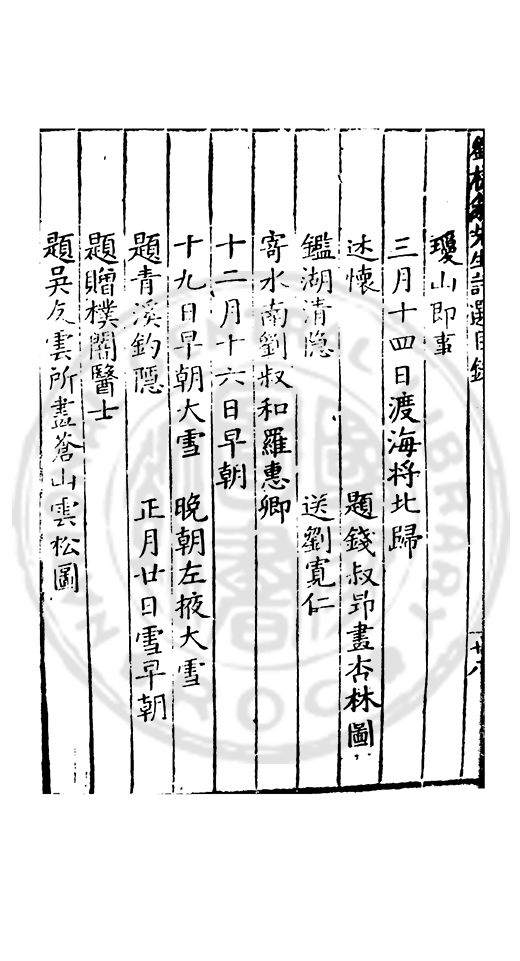 劉槎翁先生詩選目錄
瓊山即事
三月十四日渡海将北歸
述懷 題錢叔昂畫杏林圖
鑑湖清隐 送劉寬仁
寄水南劉叔和羅惠卿
十二月十六日早朝
十九日早朝大雪 晚朝左掖大雪
題青溪釣隱 正月廿日雪早朝
題贈樸閣醫士
題吳友雲所畫蒼山雲松圖